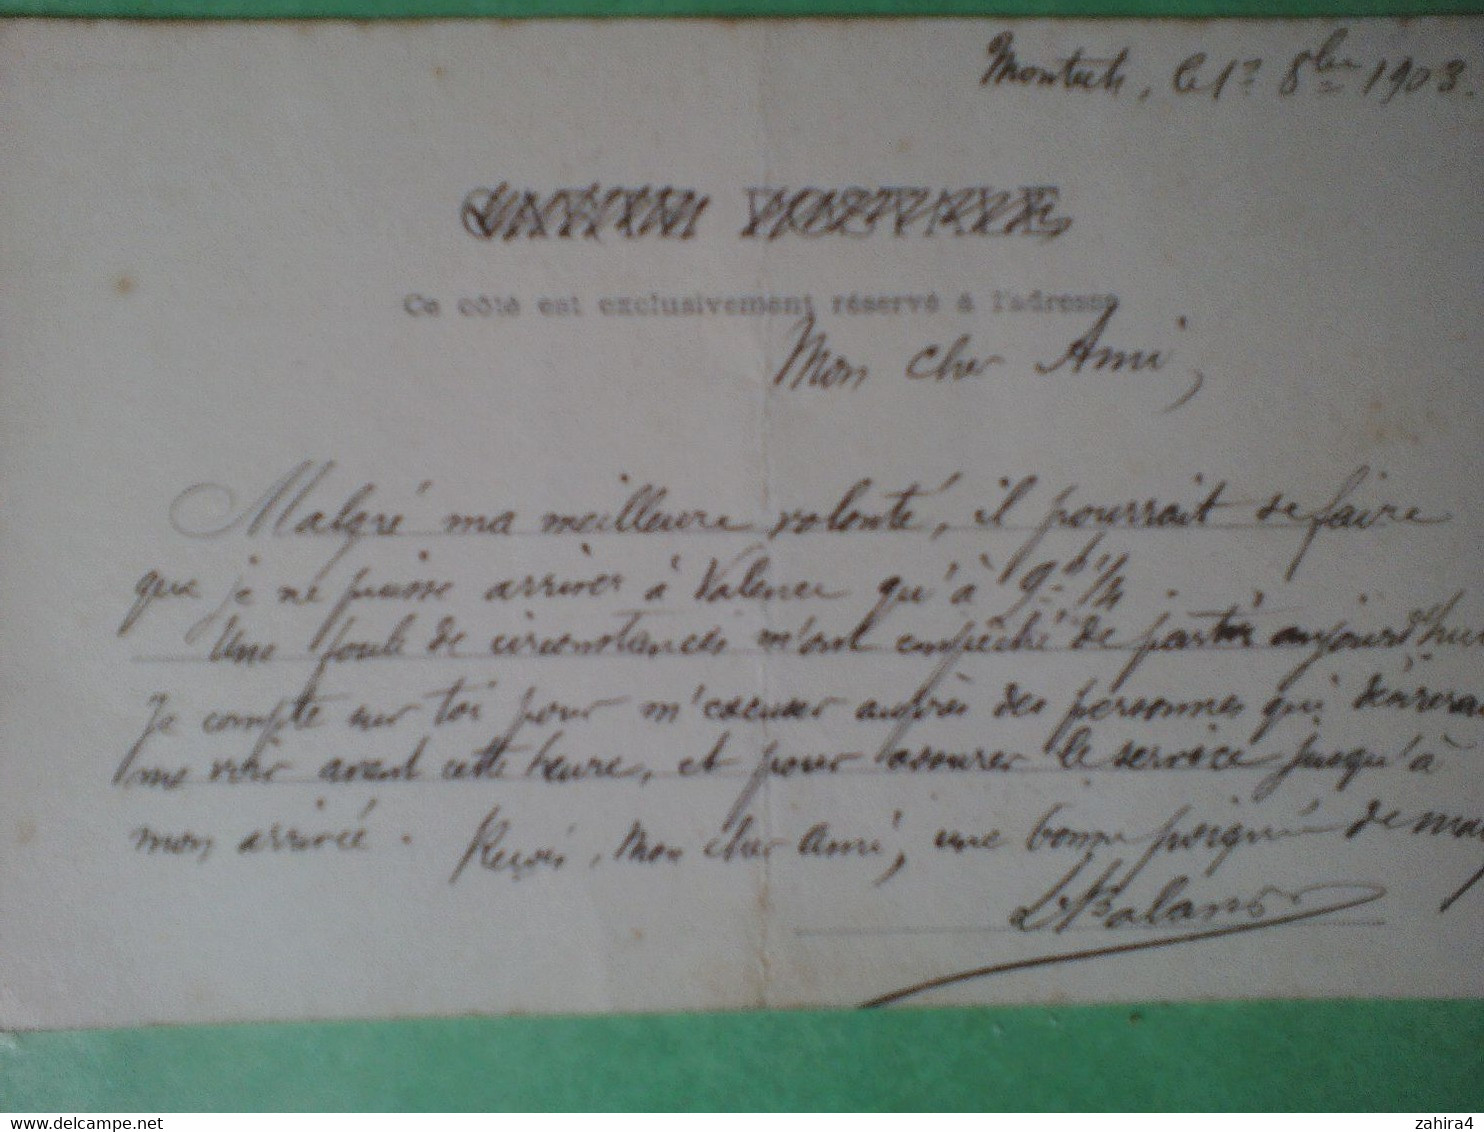 Montech, le 1er 8bre 1903.
CARTE POSTALE
Ce côté est exclusivement réservé à l'adresse
Mon cher Ami,
Malgré ma meilleure volonté, il pourrait se faire
que je ne puisse arriver à Valence qu'à 9h 1/4
Une foule de circonstances m'ont empêché de partir aujourd'hui
Je compte sur toi pour m'excuser auprès des personnes qui
me voir avant cette heure, et pour assurer le service jusqu'à
mon arrivée. Reçois, Mon cher Ami, une bonne poignée de
delcampe.net
zahira4